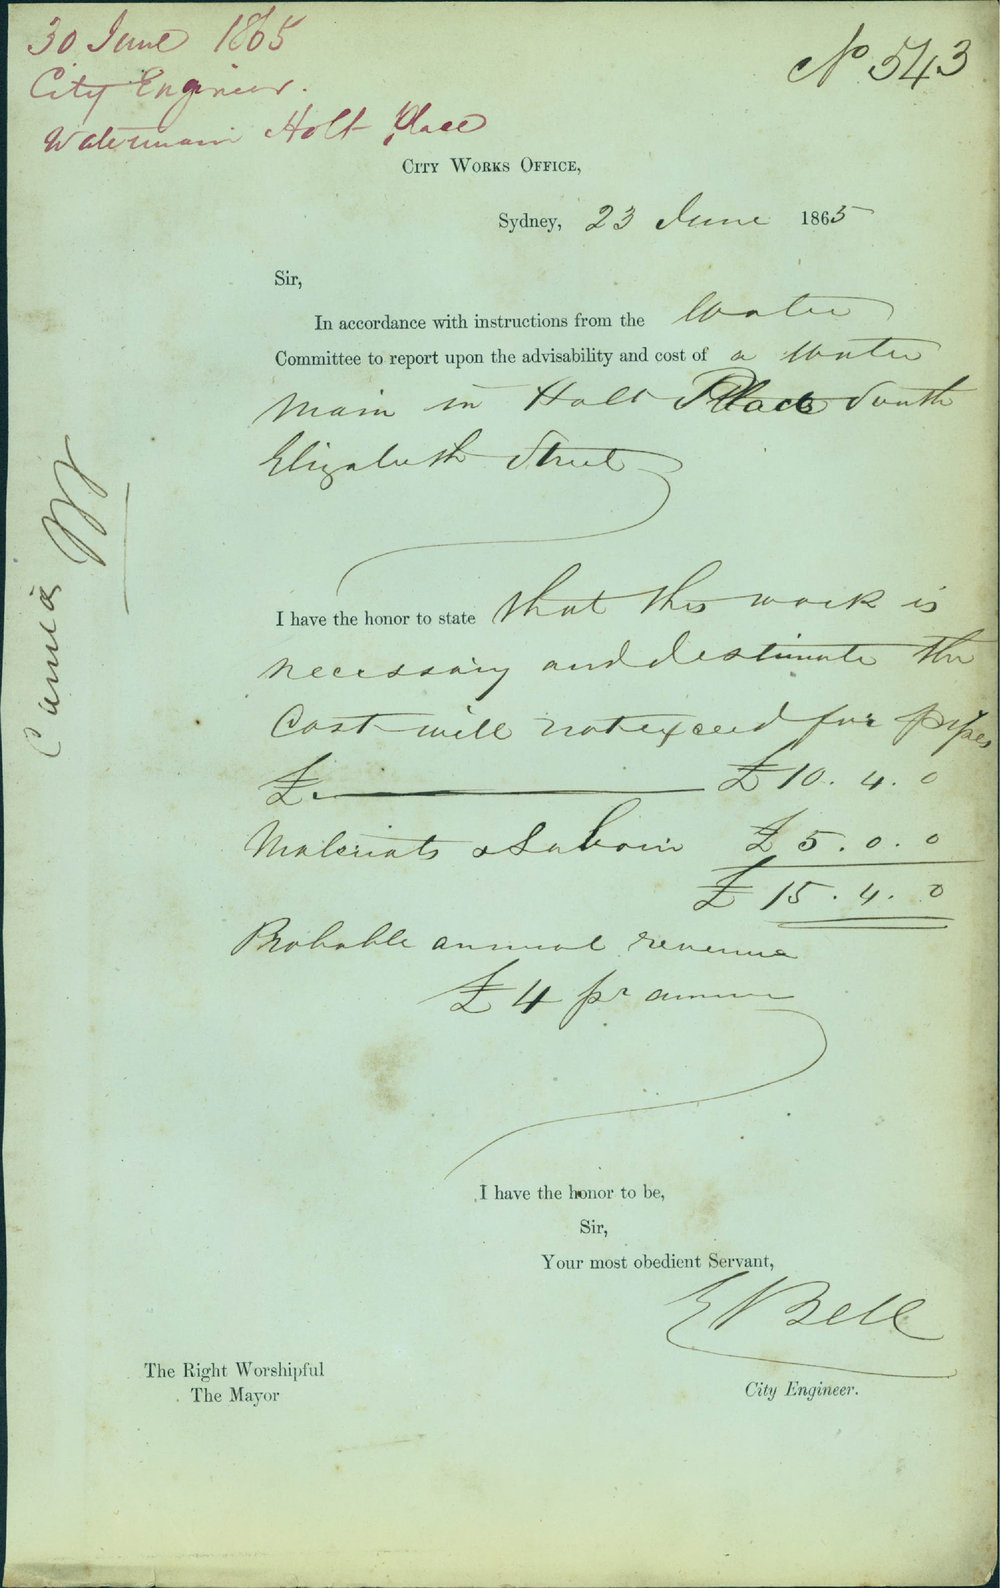 30 June 1865
City Engineer.
Watermain Holt Place
No 543
CITY WORKS OFFICE,
Sydney, 23 June 1865
Sir,
In accordance with instructions from the Water
Committee to report upon the advisability and cost of a Water
Main in Holt Place South
Elizabeth Street
I have the honor to state that this work is
necessary and I estimate the
Cost will not exceed for pipes
£. £10. 4. 0
Materials & Labour £5. 0. 0
£15. 4. 0
Probable annual revenue
£4 pr annum
I have the honor to be,
Sir,
Your most obedient Servant,
E Bell
City Engineer.
The Right Worshipful
The Mayor
Carried